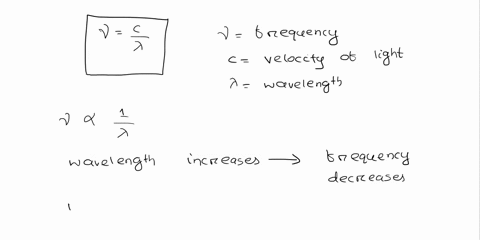 ν = c/λ
ν = frequency
c = velocity of light
λ = wavelength
ν ∝ 1/λ
wavelength increases → frequency decreases